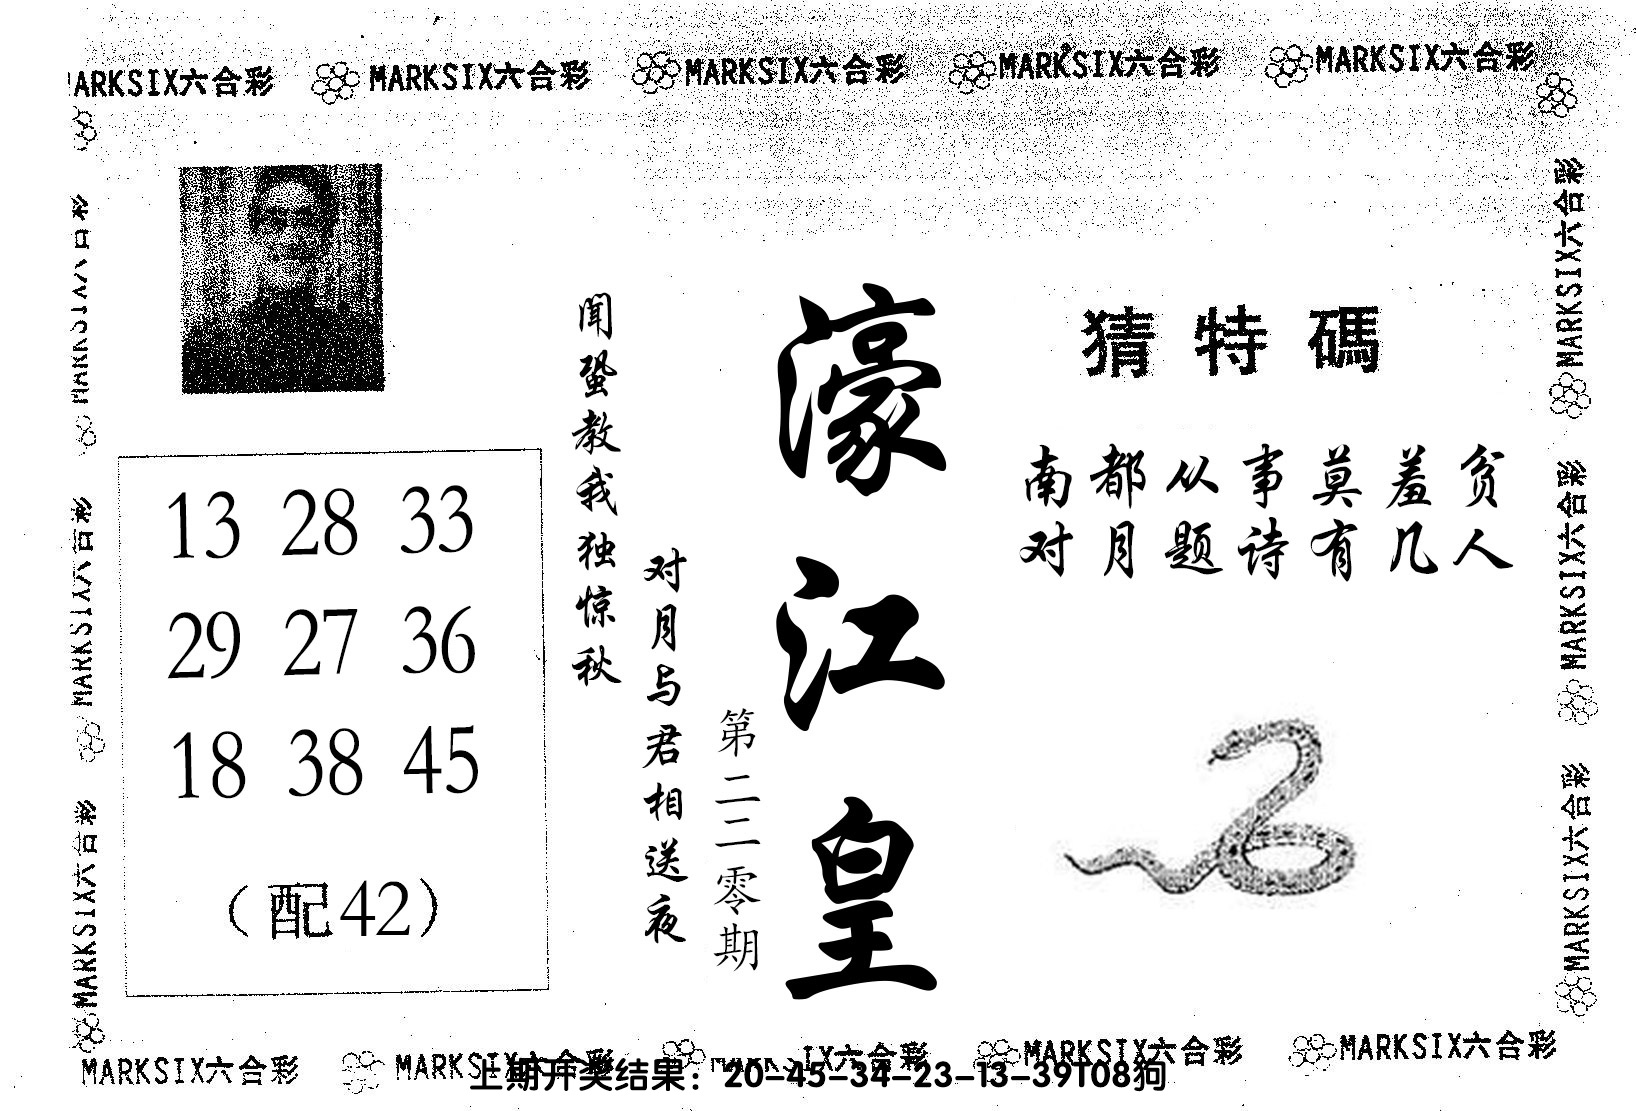 MARKSIX六合彩 MARKSIX六合彩 MARKSIX六合彩 MARKSIX六合彩 MARKSIX六合彩
MARKSIX六合彩
MARKSIX六合彩
MARKSIX六合彩
13 28 33
29 27 36
18 38 45
（配42）
闻蛩教我独惊秋
对月与君相送夜
第二二零期
濠江皇
猜特碼
南都从事莫羞贫
对月题诗有几人
MARKSIX六合彩
MARKSIX六合彩
MARKSIX六合彩
MARKSIX六合彩 MARKSIX六合彩 IX六合彩 MARKSIX六合彩 MARKSIX六合彩
上期开奖结果：20-45-34-23-13-39T08狗